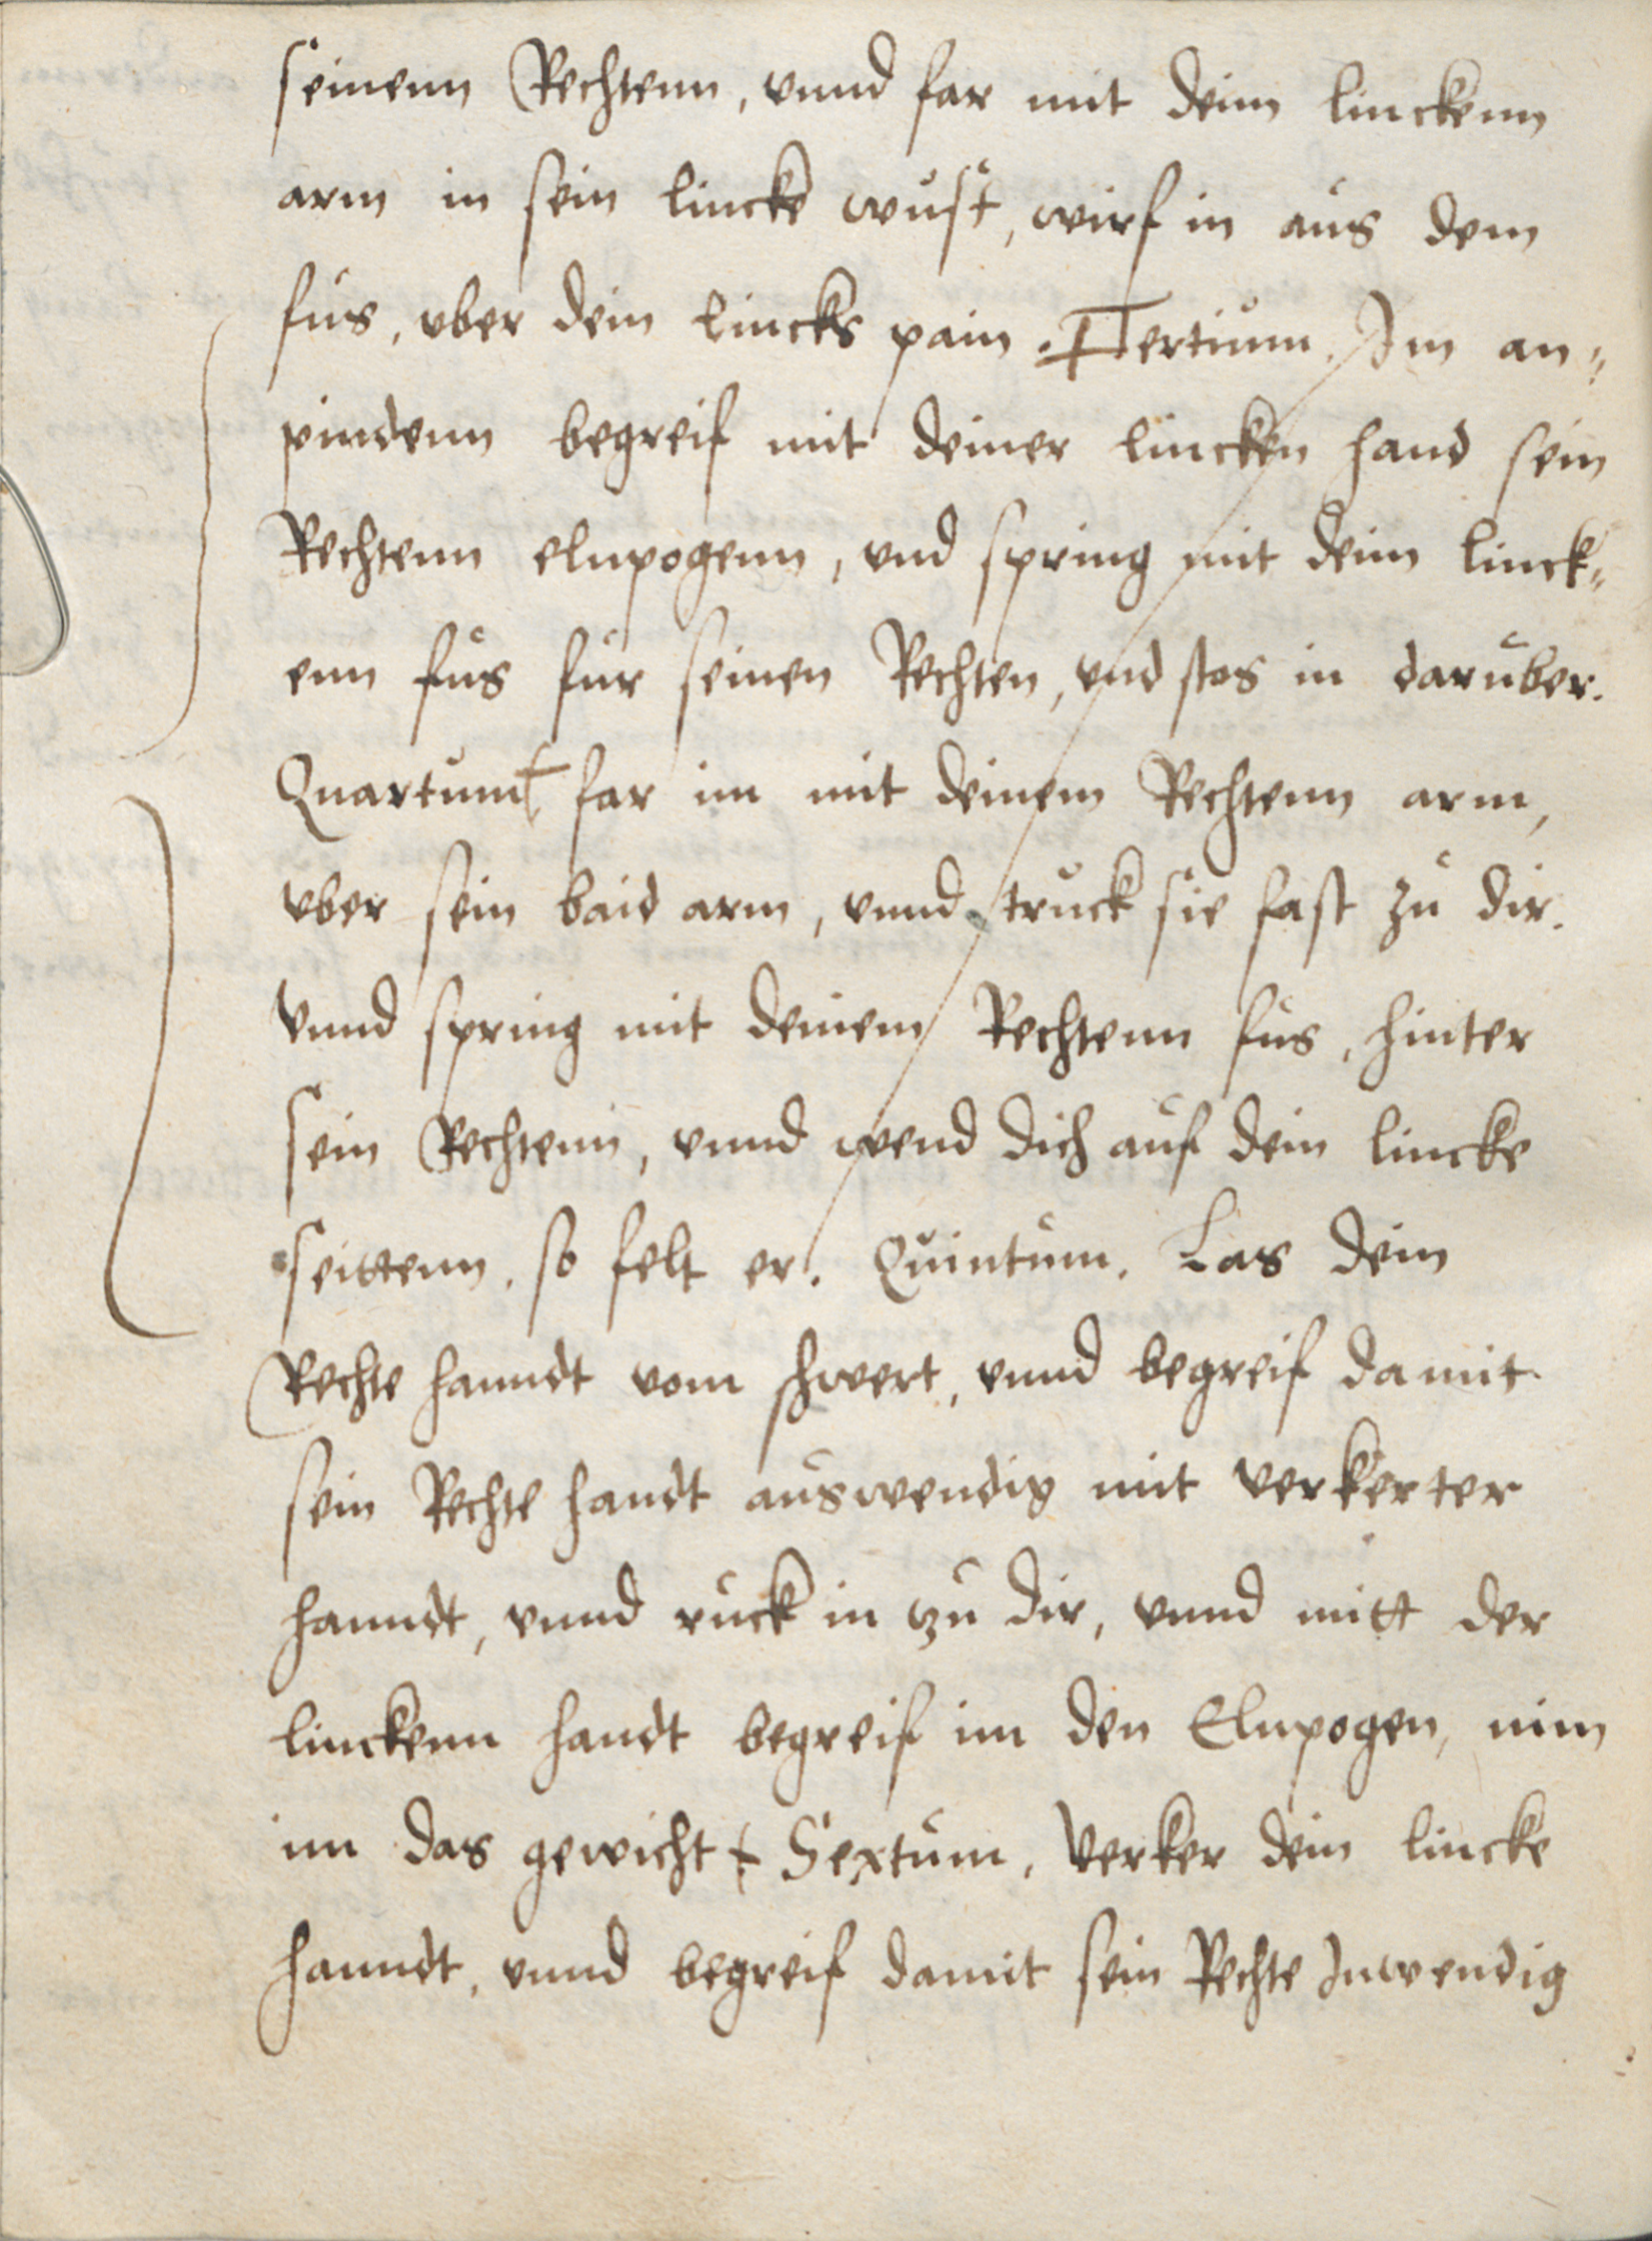 seinenn Rechtenn, vnnd far mit deim linckenn
arm in sein lincke wust, wirf in aus dem
fus, vber dein lincks pain. Tertium. Im an=
pindenn begreif mit deiner lincken hand sein
Rechtenn elnpogenn, vnd spring mit deim linck=
enn fus fur seinen Rechten, vnd stos in daruber.
Quartum far im mit deinem Rechtenn arm,
vber sein baid arm, vnnd truck sie fast zu dir.
Vnnd spring mit deinem Rechtenn fus, hinter
sein Rechtenn, vnnd wend dich auf dein lincke
seittenn. so felt er. Quintum. Las dein
Rechte hanndt vom schwert, vnnd begreif damit
sein Rechte handt auswendig mit verkerter
hanndt, vnnd ruck in zu dir, vnnd mitt der
linckenn handt begreif im den Elnpogen, nim
im das gewicht Sextum, Verker dein lincke
hanndt, vnnd begreif damit sein Rechte Inwendig